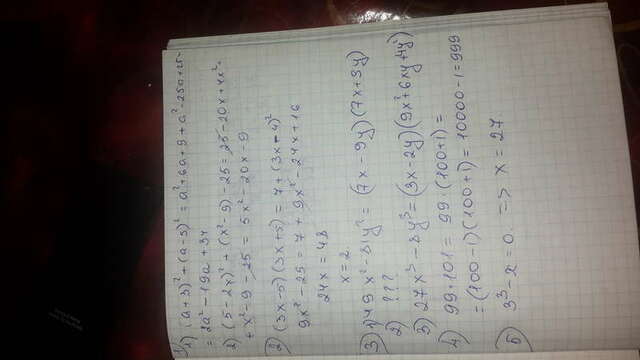 1) 1) (a+3)² + (a-5)² = a²+6a+9+a²-25a+25=
= 2a² - 19a + 34
2) (5-2x)² + (x²-9) - 25 = 25 - 20x + 4x² +
+ x² - 9 - 25 = 5x² - 20x - 9
2) (3x-5)(3x+5) = 7 + (3x-4)²
9x² - 25 = 7 + 9x² - 24x + 16
24x = 48
x = 2.
3) 1) 49x² - 81y² = (7x-9y)(7x+9y)
2) ???
3) 27x³ - 8y³ = (3x-2y)(9x²+6xy+4y²)
4) 99·101 = 99·(100+1) =
= (100-1)(100+1) = 10000-1 = 999
5) 3³ - x = 0. => x = 27